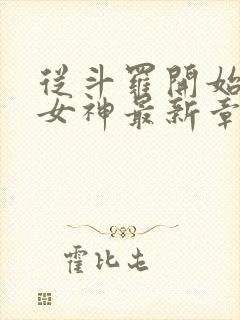 從斗羅開始
女神最新章
霍比屯